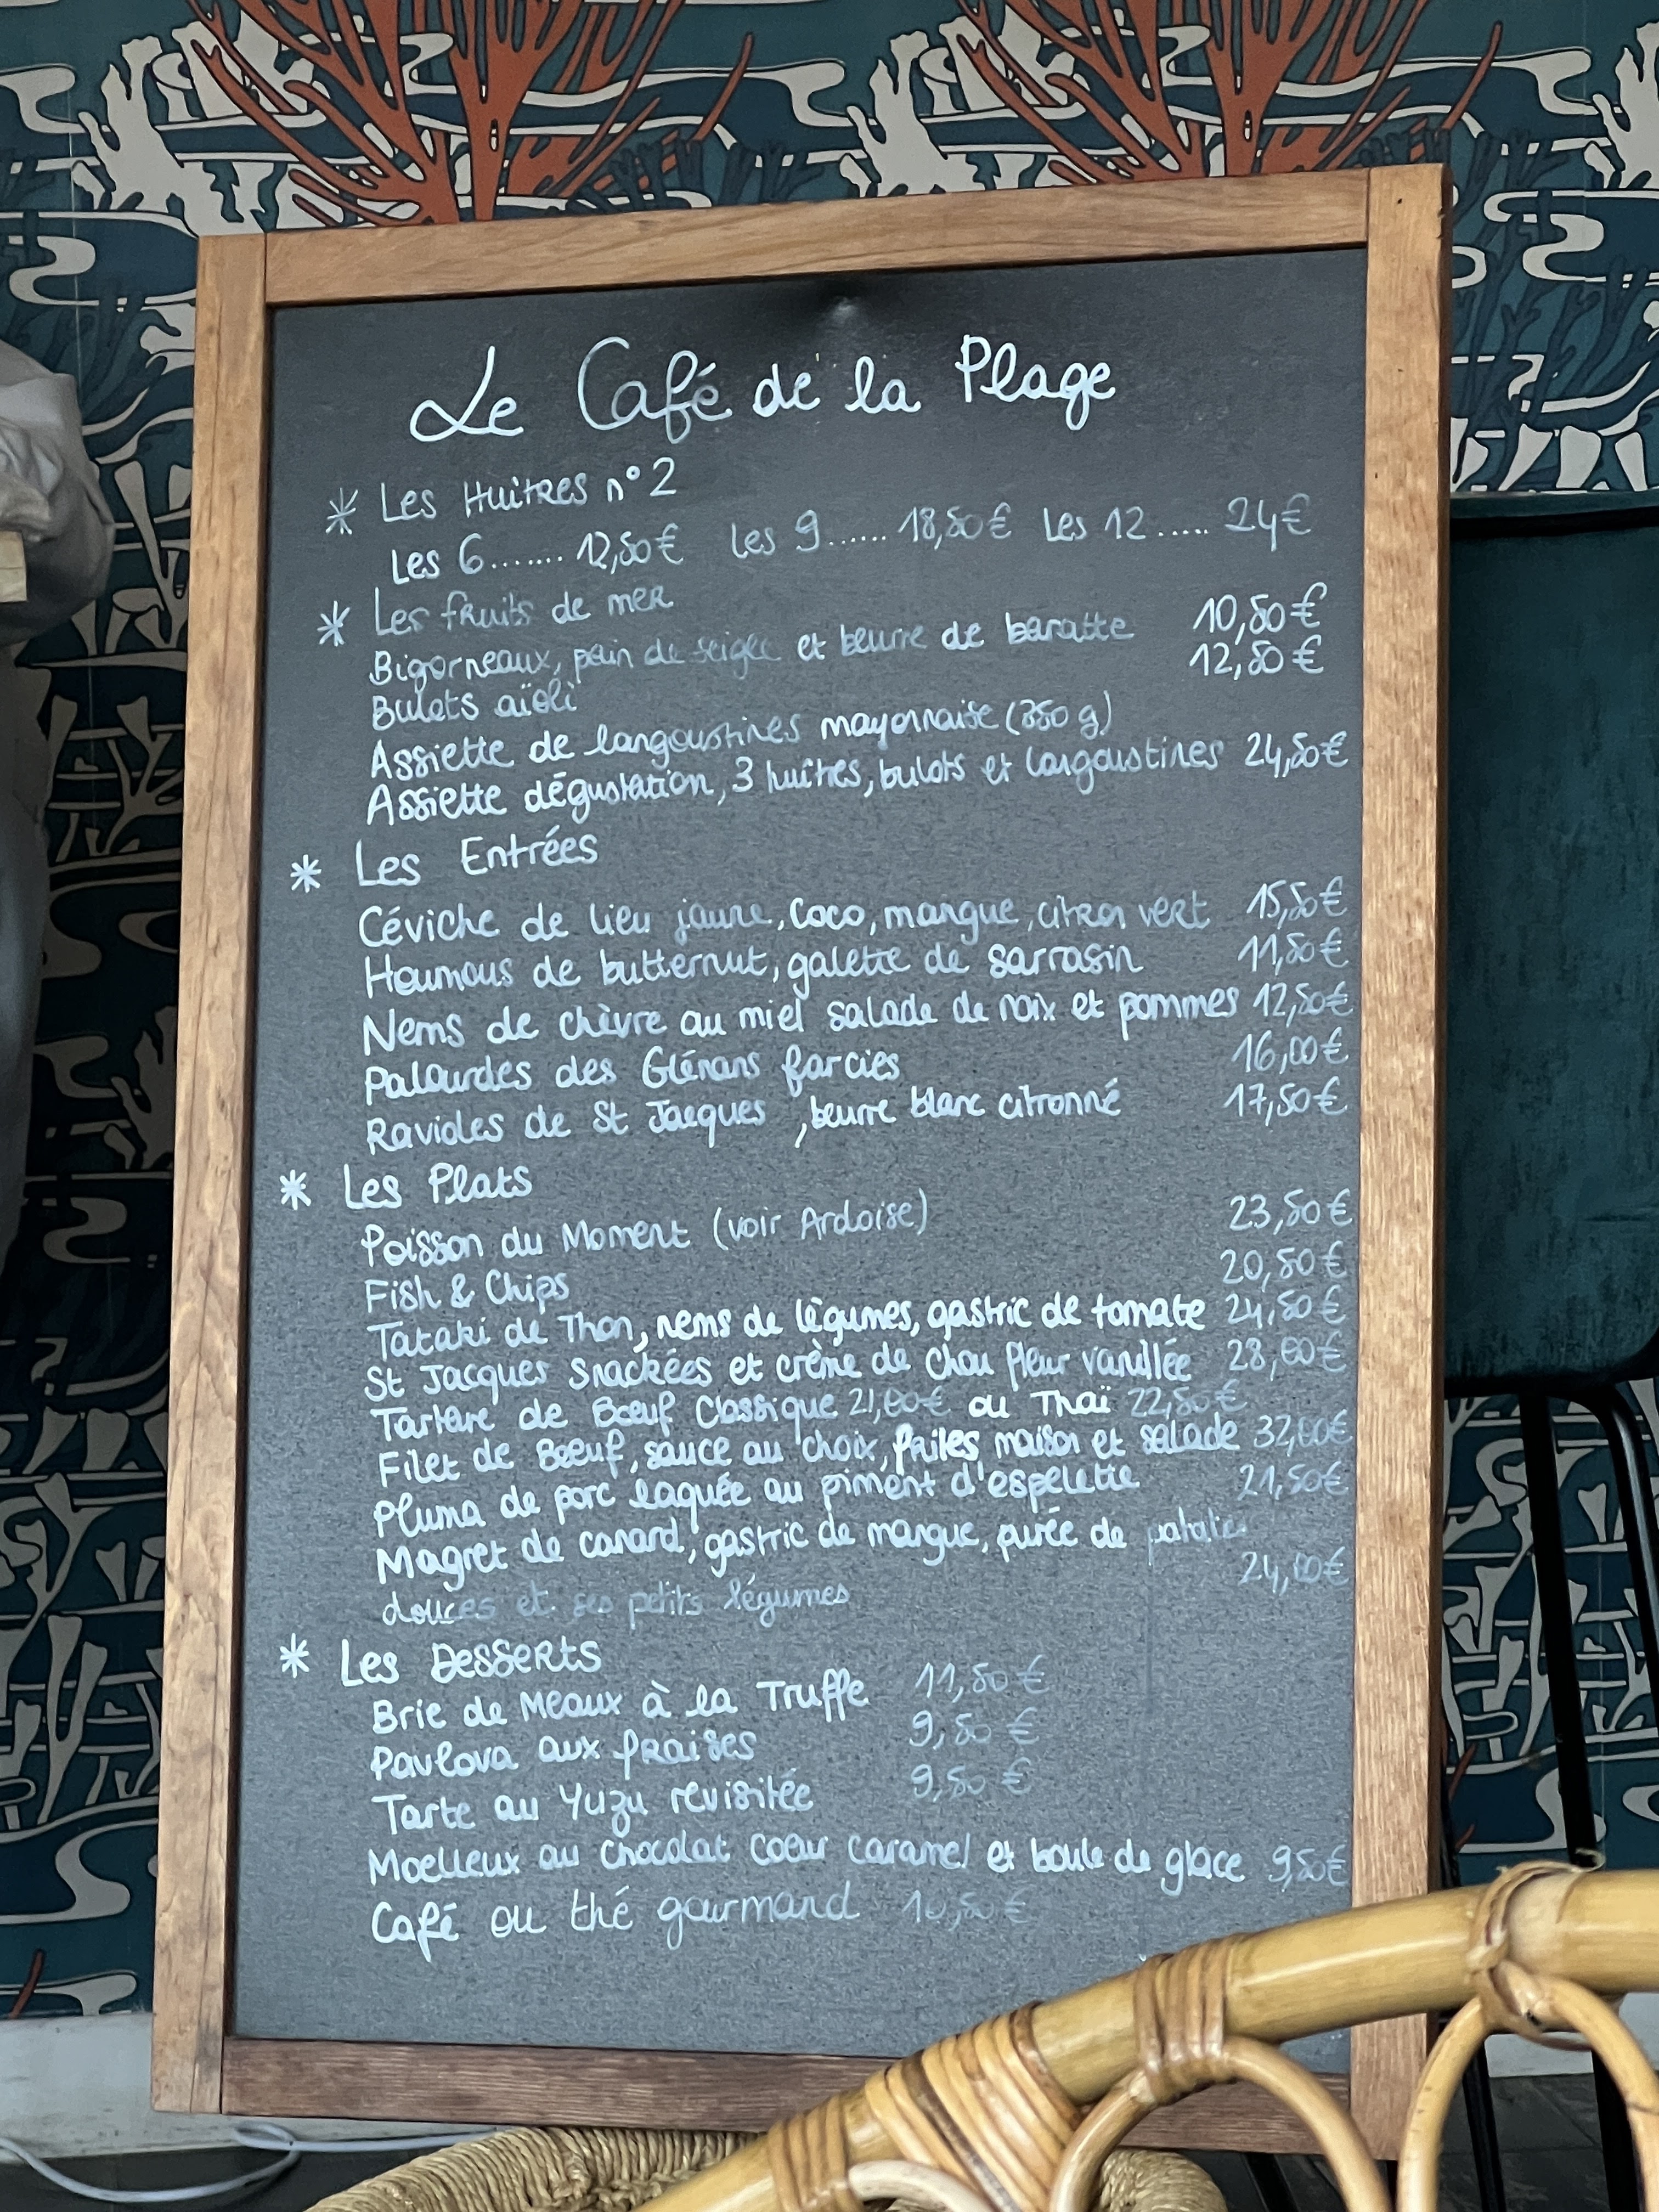 Le Café de la Plage
* Les Huitres n°2
Les 6....... 12,50€ Les 9...... 18,50€ Les 12..... 24€
* Les fruits de mer
Bigorneaux, pain de seigle et beurre de baratte 10,50€
Bulots aïoli 12,50€
Assiette de langoustines mayonnaise (350 g)
Assiette dégustation, 3 huîtres, bulots et langoustines 24,50€
* Les Entrées
Céviche de lieu jaune, coco, mangue, citron vert 15,50€
Houmous de butternut, galette de sarrasin 11,50€
Nems de chèvre au miel salade de noix et pommes 12,50€
Palourdes des Glénans farcies 16,00€
Ravioles de St Jacques, beurre blanc citronné 17,50€
* Les Plats
Poisson du Moment (voir Ardoise) 23,50€
Fish & Chips 20,50€
Tataki de Thon, nems de légumes, gastric de tomate 24,50€
St Jacques Snackées et crème de chou fleur vanillée 28,00€
Tartare de Bœuf Classique 21,00€ ou Thaï 22,50€
Filet de Bœuf, sauce au choix, frites maison et salade 32,00€
Pluma de porc laquée au piment d'espelette 21,50€
Magret de canard, gastric de mangue, purée de patates
douces et ses petits légumes 24,00€
* Les Desserts
Brie de Meaux à la Truffe 11,50€
Pavlova aux fraises 9,50€
Tarte au Yuzu revisitée 9,50€
Moelleux au chocolat coeur caramel et boule de glace 9,50€
Café ou thé gourmand 10,50€